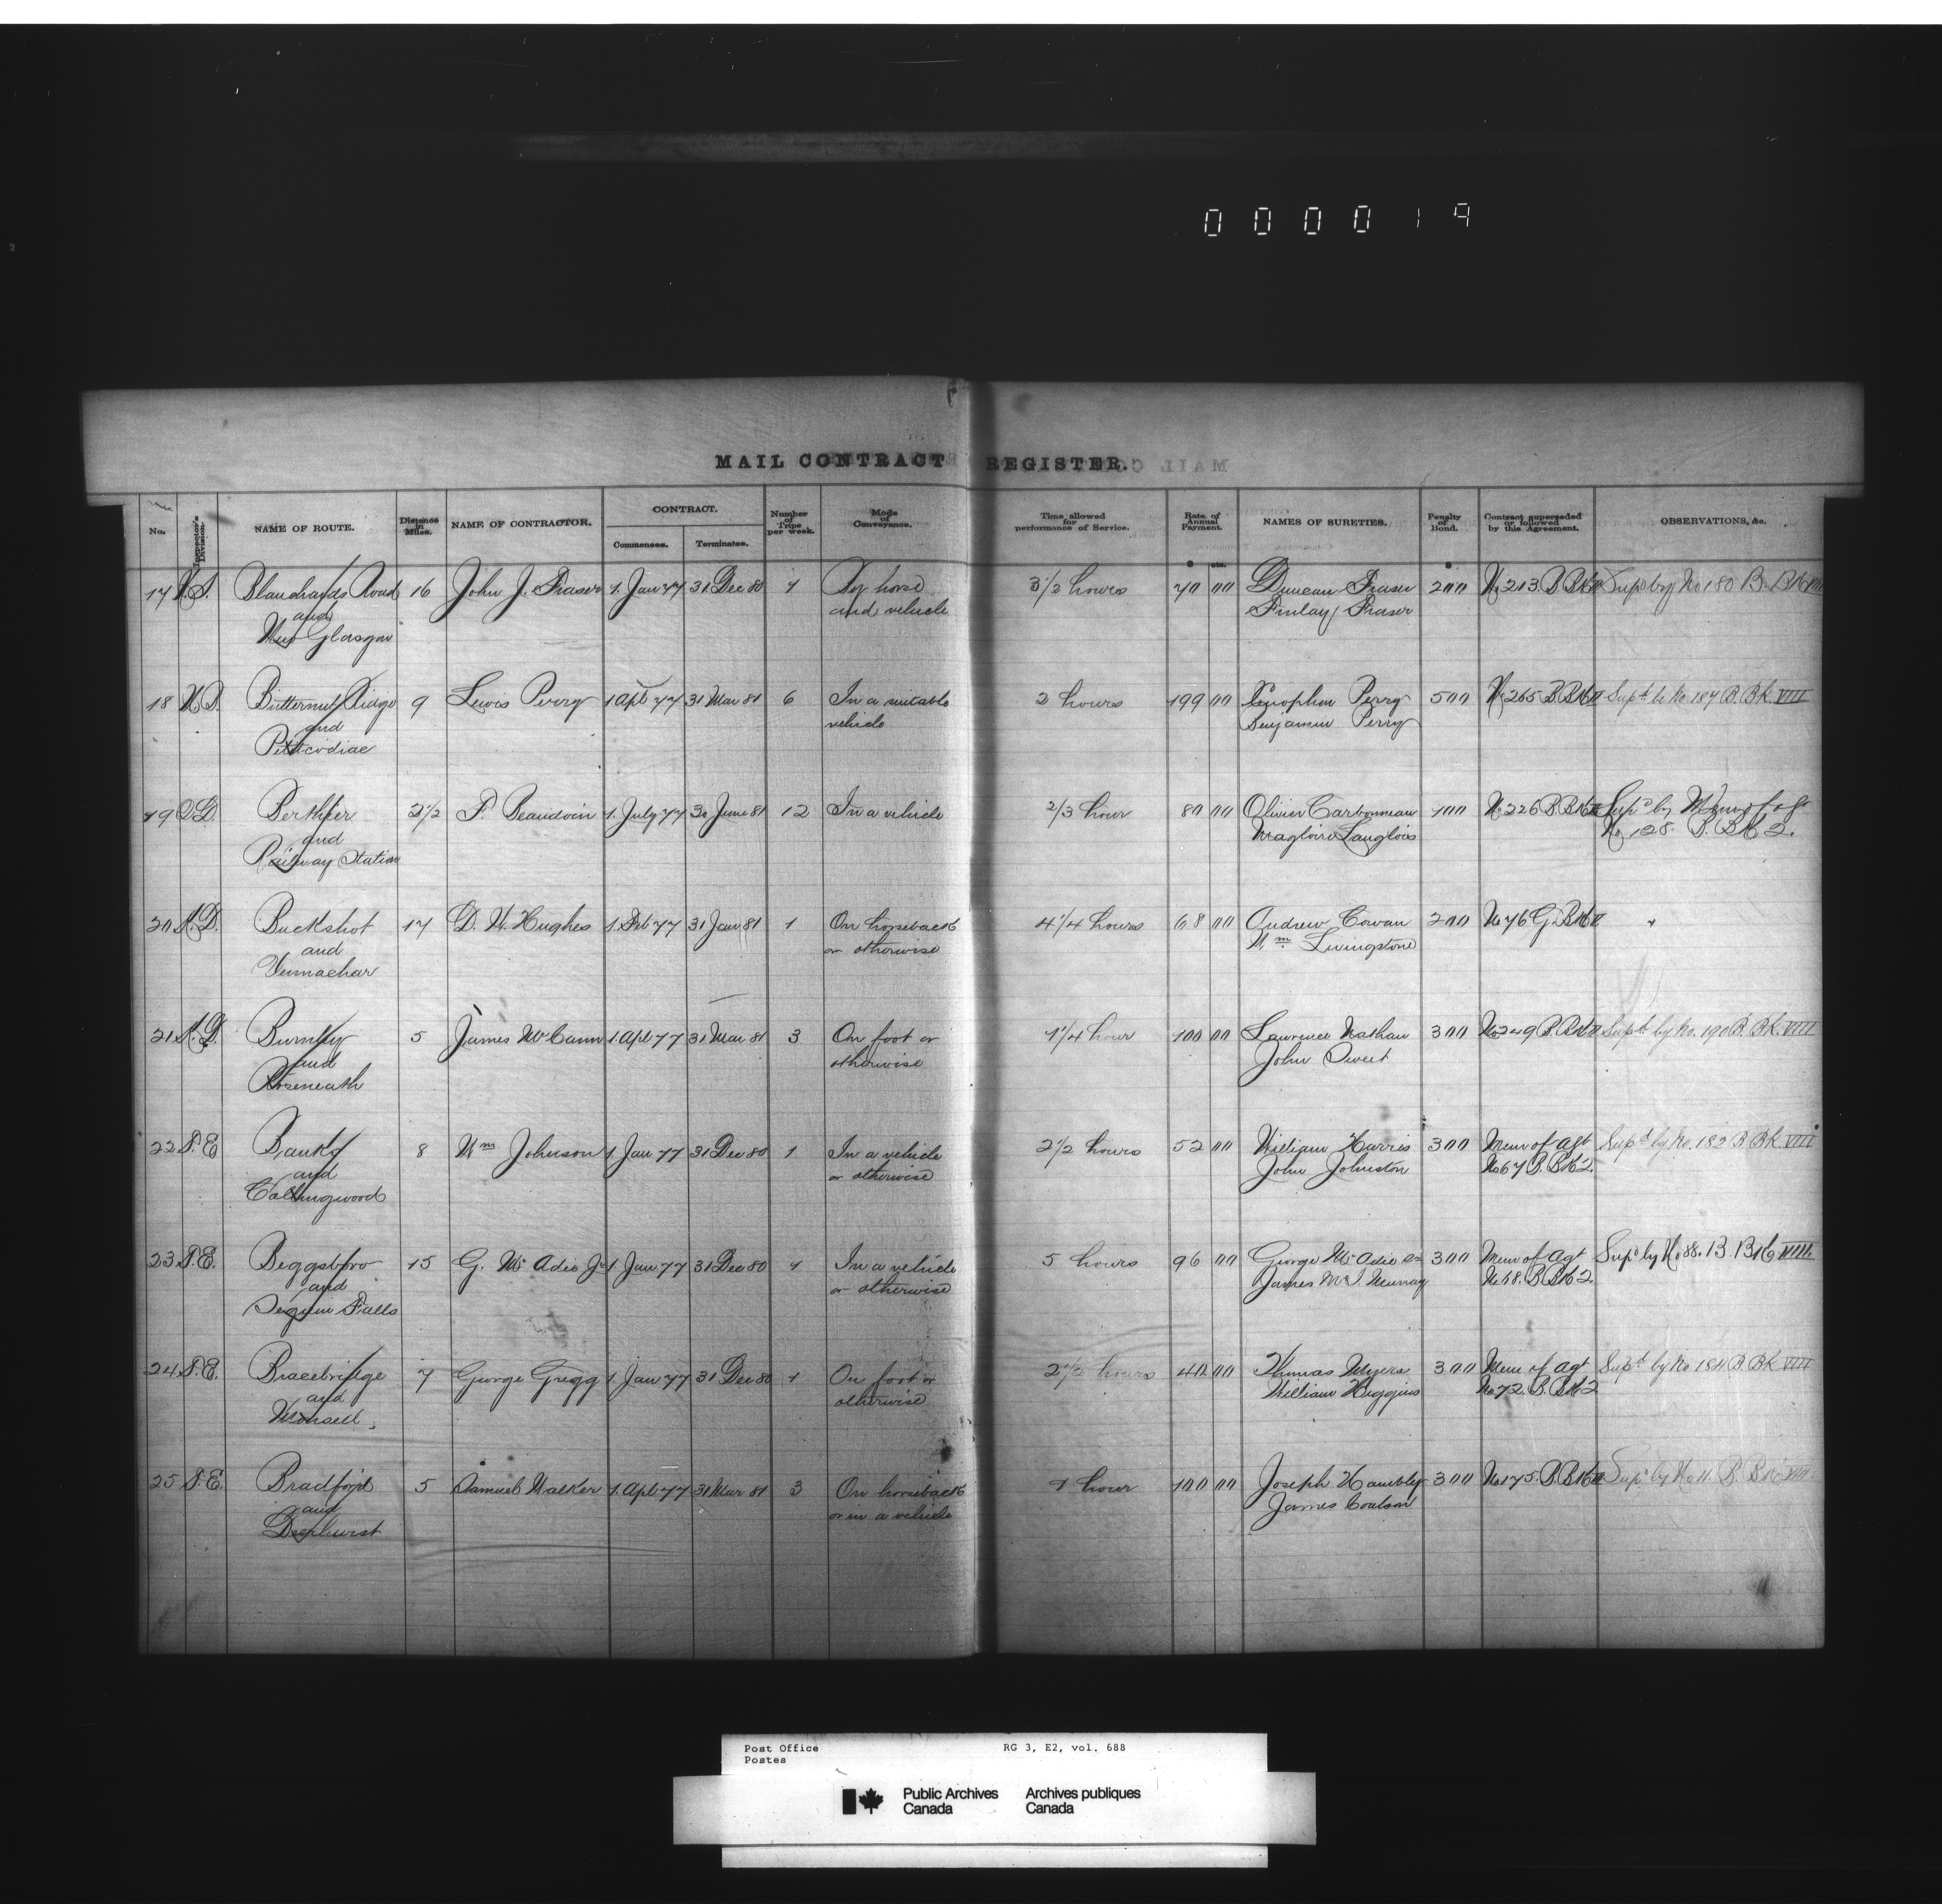 000019
MAIL CONTRACT REGISTER.
No.
Inspector's Division.
NAME OF ROUTE.
Distance in Miles.
NAME OF CONTRACTOR.
CONTRACT.
Commences.
Terminates.
Number of Trips per week.
Mode of Conveyance.
Time allowed for performance of Service.
Rate of Annual Payment.
NAMES OF SURETIES.
Penalty of Bond.
Contract superseded or followed by this Agreement.
OBSERVATIONS, &c.
cts.
17 N.S. Blanchards Road 16 John J. Fraser 1. Jan 77 31 Dec 80 1 By horse 3 1/2 hours 70 00 Duncan Fraser 200 No 213. B Bk Supd by No 180 B. Bk VIII
and and vehicle Finlay Fraser
New Glasgow
18 N.B. Butternut Ridge 9 Lewis Perry 1 Apl 77 31 Mar 81 6 In a suitable 2 hours 199 00 Xenophen Perry 500 No 265 B Bk Supd by No 187 B. Bk. VIII
and vehicle Benjamin Perry
Petticodiac
19 Berthier 2 1/2 P. Beaudoin 1. July 77 30 June 81 12 In a vehicle 2/3 hour 80 00 Olivier Carbonneau 100 No 226 B Bk Supd by Mem of agt
and Magloire Langlois No 128. B. Bk 2.
Railway Station
20 K.D. Buckshot 17 D. W. Hughes 1. Feb 77 31 Jan 81 1 On horseback 4 1/4 hours 68 00 Andrew Cowan 200 No 76 G. Bk
and or otherwise Wm Livingstone
Vennachar
21 K.D. Burnley 5 James McCann 1. Apl 77 31 Mar 81 3 On foot or 1 1/4 hour 100 00 Lawrence Nathan 300 No 249 B Bk Supd by No. 190 B. Bk. VIII
and otherwise John Sweet
Roseneath
22 T.E Banks 8 Wm Johnson 1 Jan 77 31 Dec 80 1 In a vehicle 2 1/2 hours 52 00 William Harris 300 Mem of agt Supd by No. 182 B Bk VIII
and or otherwise John Johnston No 67 B. Bk 2.
Collingwood
23 T.E. Beggsboro 15 G. McAdie Jr 1 Jan 77 31 Dec 80 1 In a vehicle 5 hours 96 00 George McAdie Sr 300 Mem of Agt Supd by No 88. B. Bk VIII.
and or otherwise James McI. Murray No 68. B Bk 2.
Seguin Falls
24 T.E. Bracebridge 7 George Gregg 1 Jan 77 31 Dec 80 1 On foot or 2 1/2 hours 40 00 Thomas Myers 300 Mem of Agt Supd by No 184 B. Bk VIII
and otherwise William Huggins No 72. B. Bk 2
Monsell.
25 T.E. Bradford 5 Samuel Walker 1. Apl 77 31 Mar 81 3 On horseback 1 hour 100 00 Joseph Hambly 300 No 175. B. Bk Supd by No 11. B. Bk VIII
and or in a vehicle James Coulson
Deerhurst
Post Office RG 3, E2, vol. 688
Postes
Public Archives Archives publiques
Canada Canada